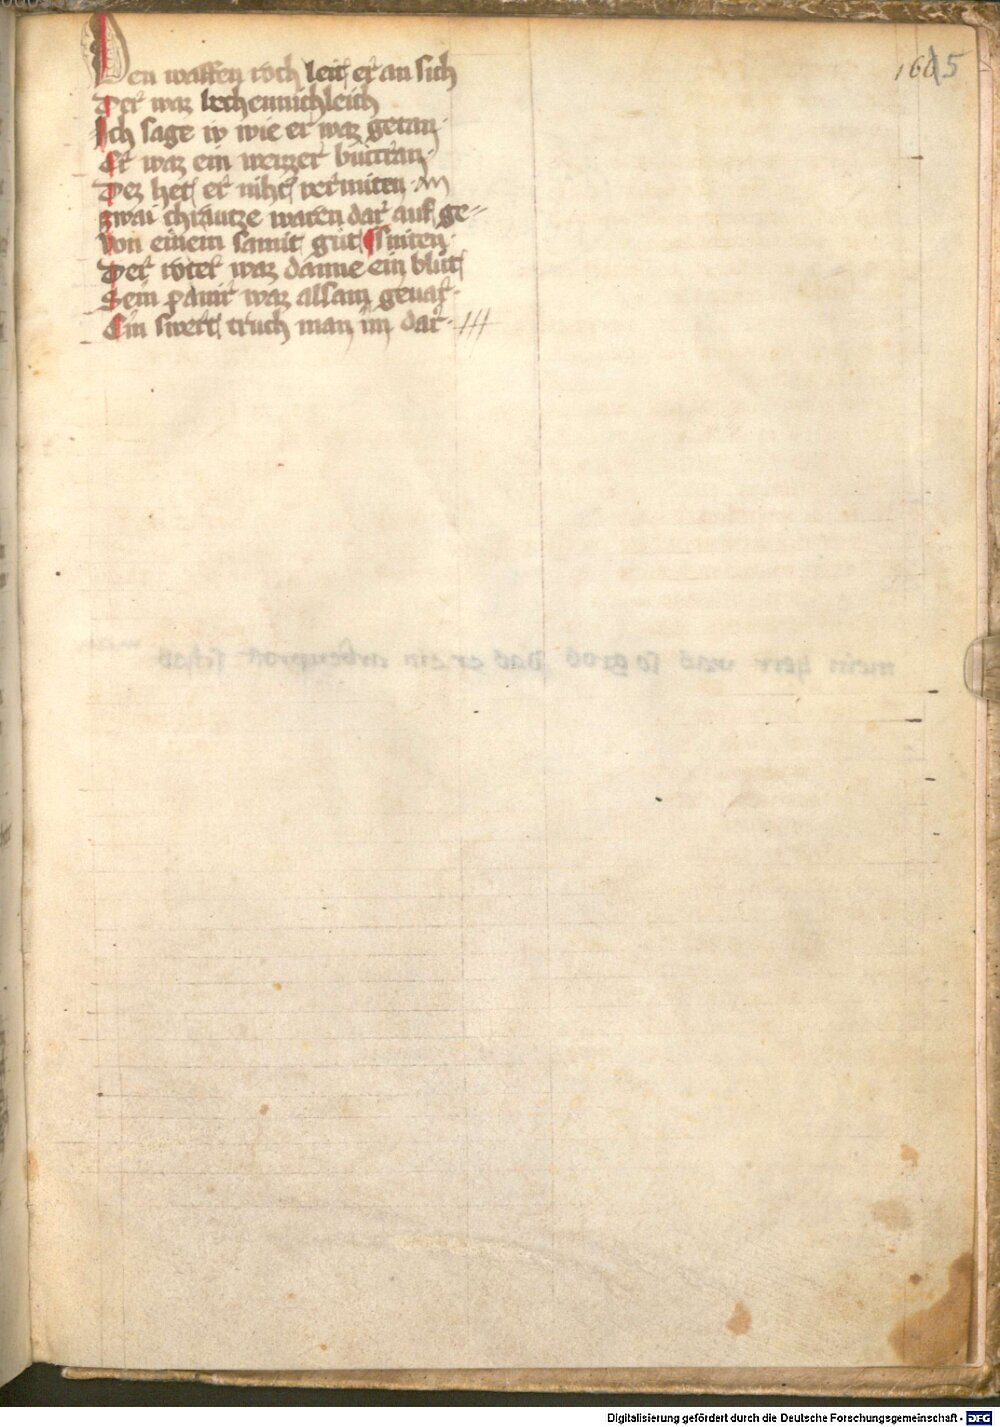 1665
Den waffen roch leit er an sich
Der waz lechennichleich
Ich sage iv wie er waz getan
Er waz ein weizzer buttran
Dez het er niht vermiten
zwai chrautze waren dar auf ge-
von einem samit gut ¶ sniten
Der roter waz danne ein blut
Sein panir waz alsam geuar
Ein swert truch man im dar
mein herr was so gros Das er ein
Digitalisierung gefördert durch die Deutsche Forschungsgemeinschaft - DFG